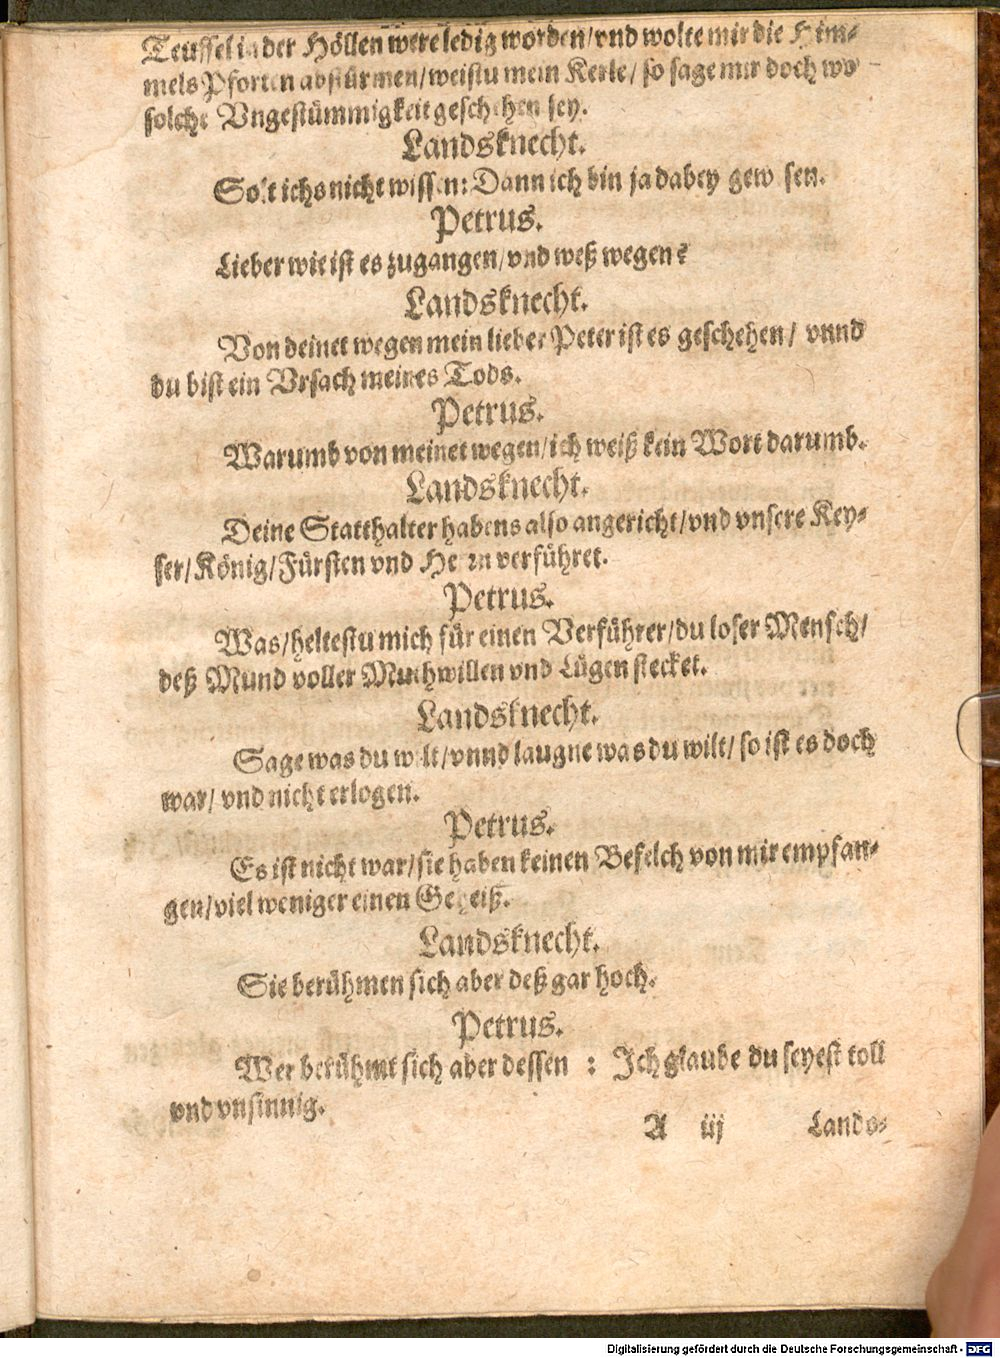 Teuffel in der Höllen were ledig worden/vnd wolte mir die Him-
mels Pforten abstürmen/weistu mein Kerle/ so sage mir doch wo
solche Vngestümmigkeit geschehen sey.
Landsknecht.
Solt ichs nicht wissen: Dann ich bin ja dabey gewesen.
Petrus.
Lieber wie ist es zugangen/vnd weß wegen?
Landsknecht.
Von deinet wegen mein lieber Peter ist es geschehen/ vnnd
du bist ein Vrsach meines Tods.
Petrus.
Warumb von meinet wegen/ich weiß kein Wort darumb.
Landsknecht.
Deine Statthalter habens also angericht/vnd vnsere Key-
ser/König/Fürsten vnd Herrn verführet.
Petrus.
Was/heltestu mich für einen Verführer/du loser Mensch/
deß Mund voller Muthwillen vnd Lügen stecket.
Landsknecht.
Sage was du wilt/vnnd laugne was du wilt/ so ist es doch
war/ vnd nicht erlogen.
Petrus.
Es ist nicht war/sie haben keinen Befelch von mir empfan-
gen/viel weniger einen Geheiß.
Landsknecht.
Sie berühmen sich aber deß gar hoch.
Petrus.
Wer berühmt sich aber dessen : Ich glaube du seyest toll
vnd vnsinnig.
A iij Lands-
Digitalisierung gefördert durch die Deutsche Forschungsgemeinschaft - DFG